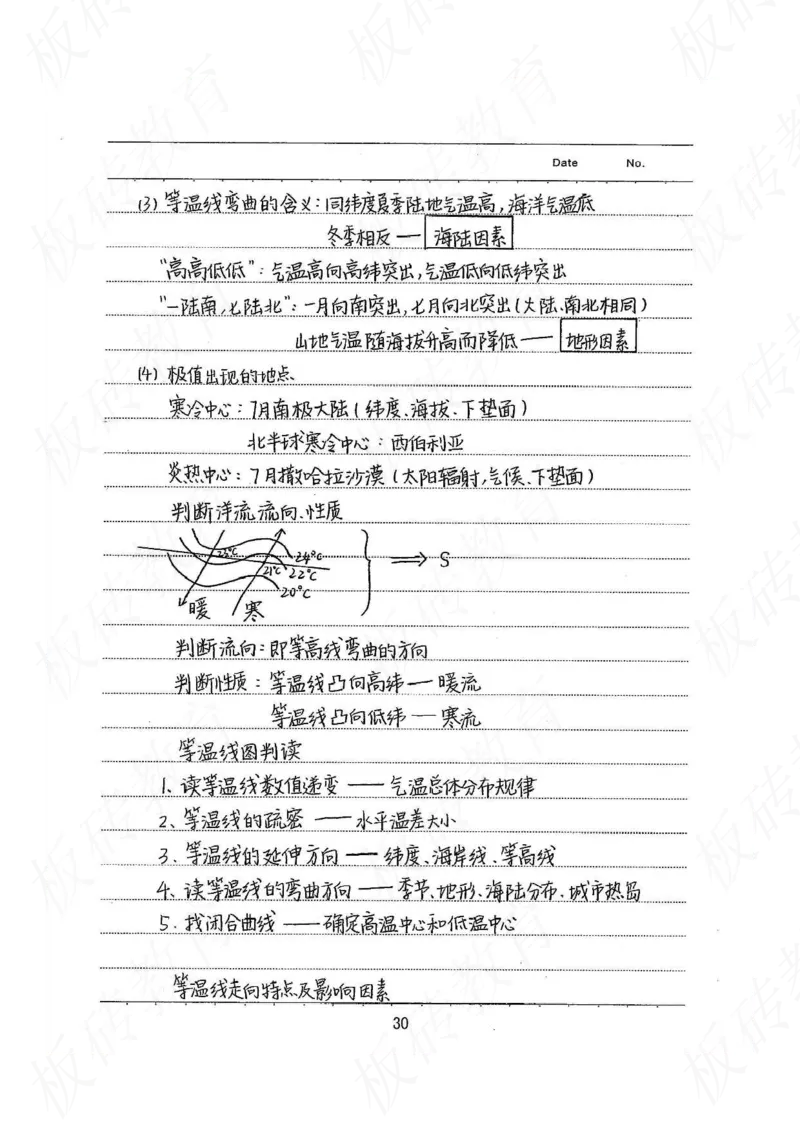 Date No.
(3) 等温线弯曲的含义:同纬度夏季陆地气温高,海洋气温底
冬季相反 — 海陆因素
“高高低低”:气温高向高纬突出,气温低向低纬突出
“一陆南,七陆北”:一月向南突出,七月向北突出(大陆、南北相同)
山地气温随海拔升高而降低 — 地形因素
(4) 极值出现的地点
寒冷中心:7月南极大陆(纬度、海拔、下垫面)
北半球寒冷中心:西伯利亚
炎热中心:7月撒哈拉沙漠(太阳辐射,气候、下垫面)
判断洋流流向、性质
23℃ 24℃
21℃ 22℃
20℃
⟹ S
暖 寒
判断流向:即等高线弯曲的方向
判断性质:等温线凸向高纬 — 暖流
等温线凸向低纬 — 寒流
等温线图判读
1、读等温线数值递变 — 气温总体分布规律
2、等温线的疏密 — 水平温差大小
3.等温线的延伸方向 — 纬度、海岸线、等高线
4、读等温线的弯曲方向 — 季节、地形、海陆分布、城市热岛
5.找闭合曲线 — 确定高温中心和低温中心
等温线走向特点及影响因素
30
板砖教育